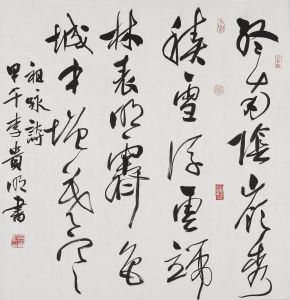 终南阴岭秀
积雪浮云端
林表明霁色
城中增暮寒
祖咏诗
甲午李贵明书